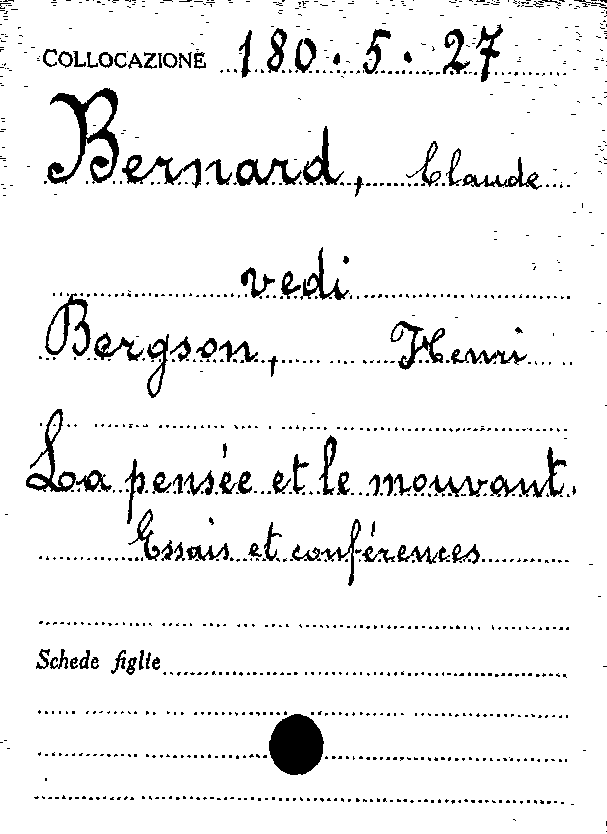 COLLOCAZIONE 180.5.27
Bernard, Claude
vedi
Bergson, Henri
La pensée et le mouvant.
Essais et conférences
Schede figlie